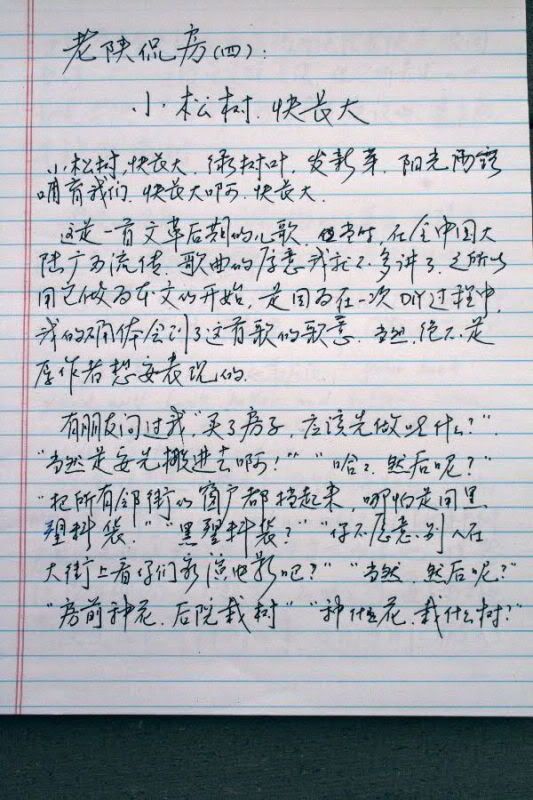 老陕侃房(四):
小松树,快长大
小松树,快长大.绿树叶,发新芽.阳光雨露
哺育我们.快长大啊.快长大.
这是一首文革后期的儿歌.但当时,在全中国大
陆广为流传.歌曲的原意我就不多讲了.之所以
用它做为本文的开始,是因为在一次DIY过程中,
我的确体会到了这首歌的歌意.当然,绝不是
原作者想要表现的.
有朋友问过我"买了房子,应该先做些什么?".
"当然是要先搬进去啊!" "哈哈.然后呢?"
"把所有邻街的窗户都挡起来,哪怕是用黑
塑料袋." "黑塑料袋?" "你不愿意别人在
大街上看你们家演电影吧?" "当然,然后呢?"
"房前种花,后院栽树" "种什么花,栽什么树?"